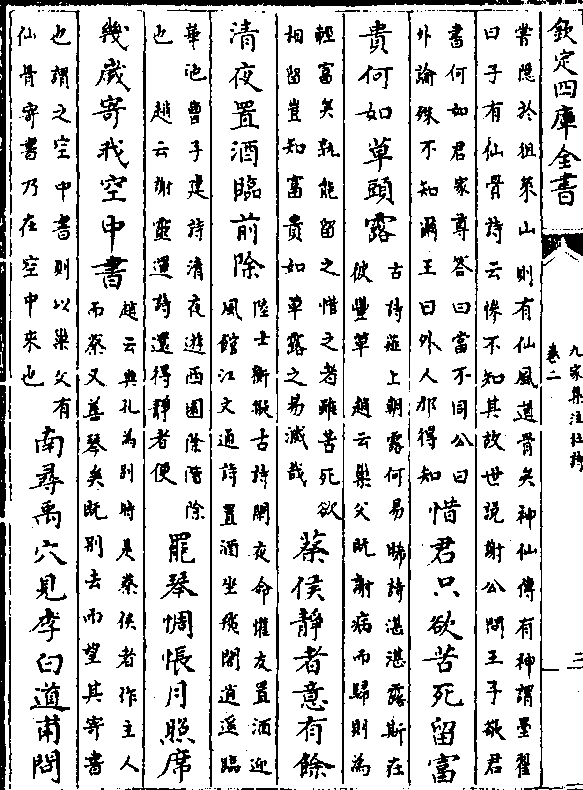 欽定四庫全書
九家集注杜詩
卷二
三
嘗隱於徂萊山則有仙風道骨矣神仙傳有神謂墨翟
曰子有仙骨詩云慘不知其故世說謝公問王子敬君
書何如君家尊答曰當不同公曰
外論殊不知爾王曰外人那得知
惜君只欲苦死留富
貴何如草頭露
古詩薤上朝露何易晞詩湛湛露斯在
彼豐草 趙云巢父既謝病而歸則為
輕富矣孰能留之惜之者雖苦死欲
相留豈知富貴如草露之易滅哉
蔡侯靜者意有餘
清夜置酒臨前除
陸士衡擬古詩閒夜命懽友置酒迎
風館江文通詩置酒坐飛閣逍遙臨
華池曹子建詩清夜遊西園除階除
也 趙云謝靈運詩還得靜者便
罷琴惆悵月照席
幾歲寄我空中書
趙云與孔為別時是蔡侯者作主人
而蔡又善琴矣既別去而望其寄書
也謂之空中書則以巢父有
仙骨寄書乃在空中來也
南尋禹穴見李白道甫問